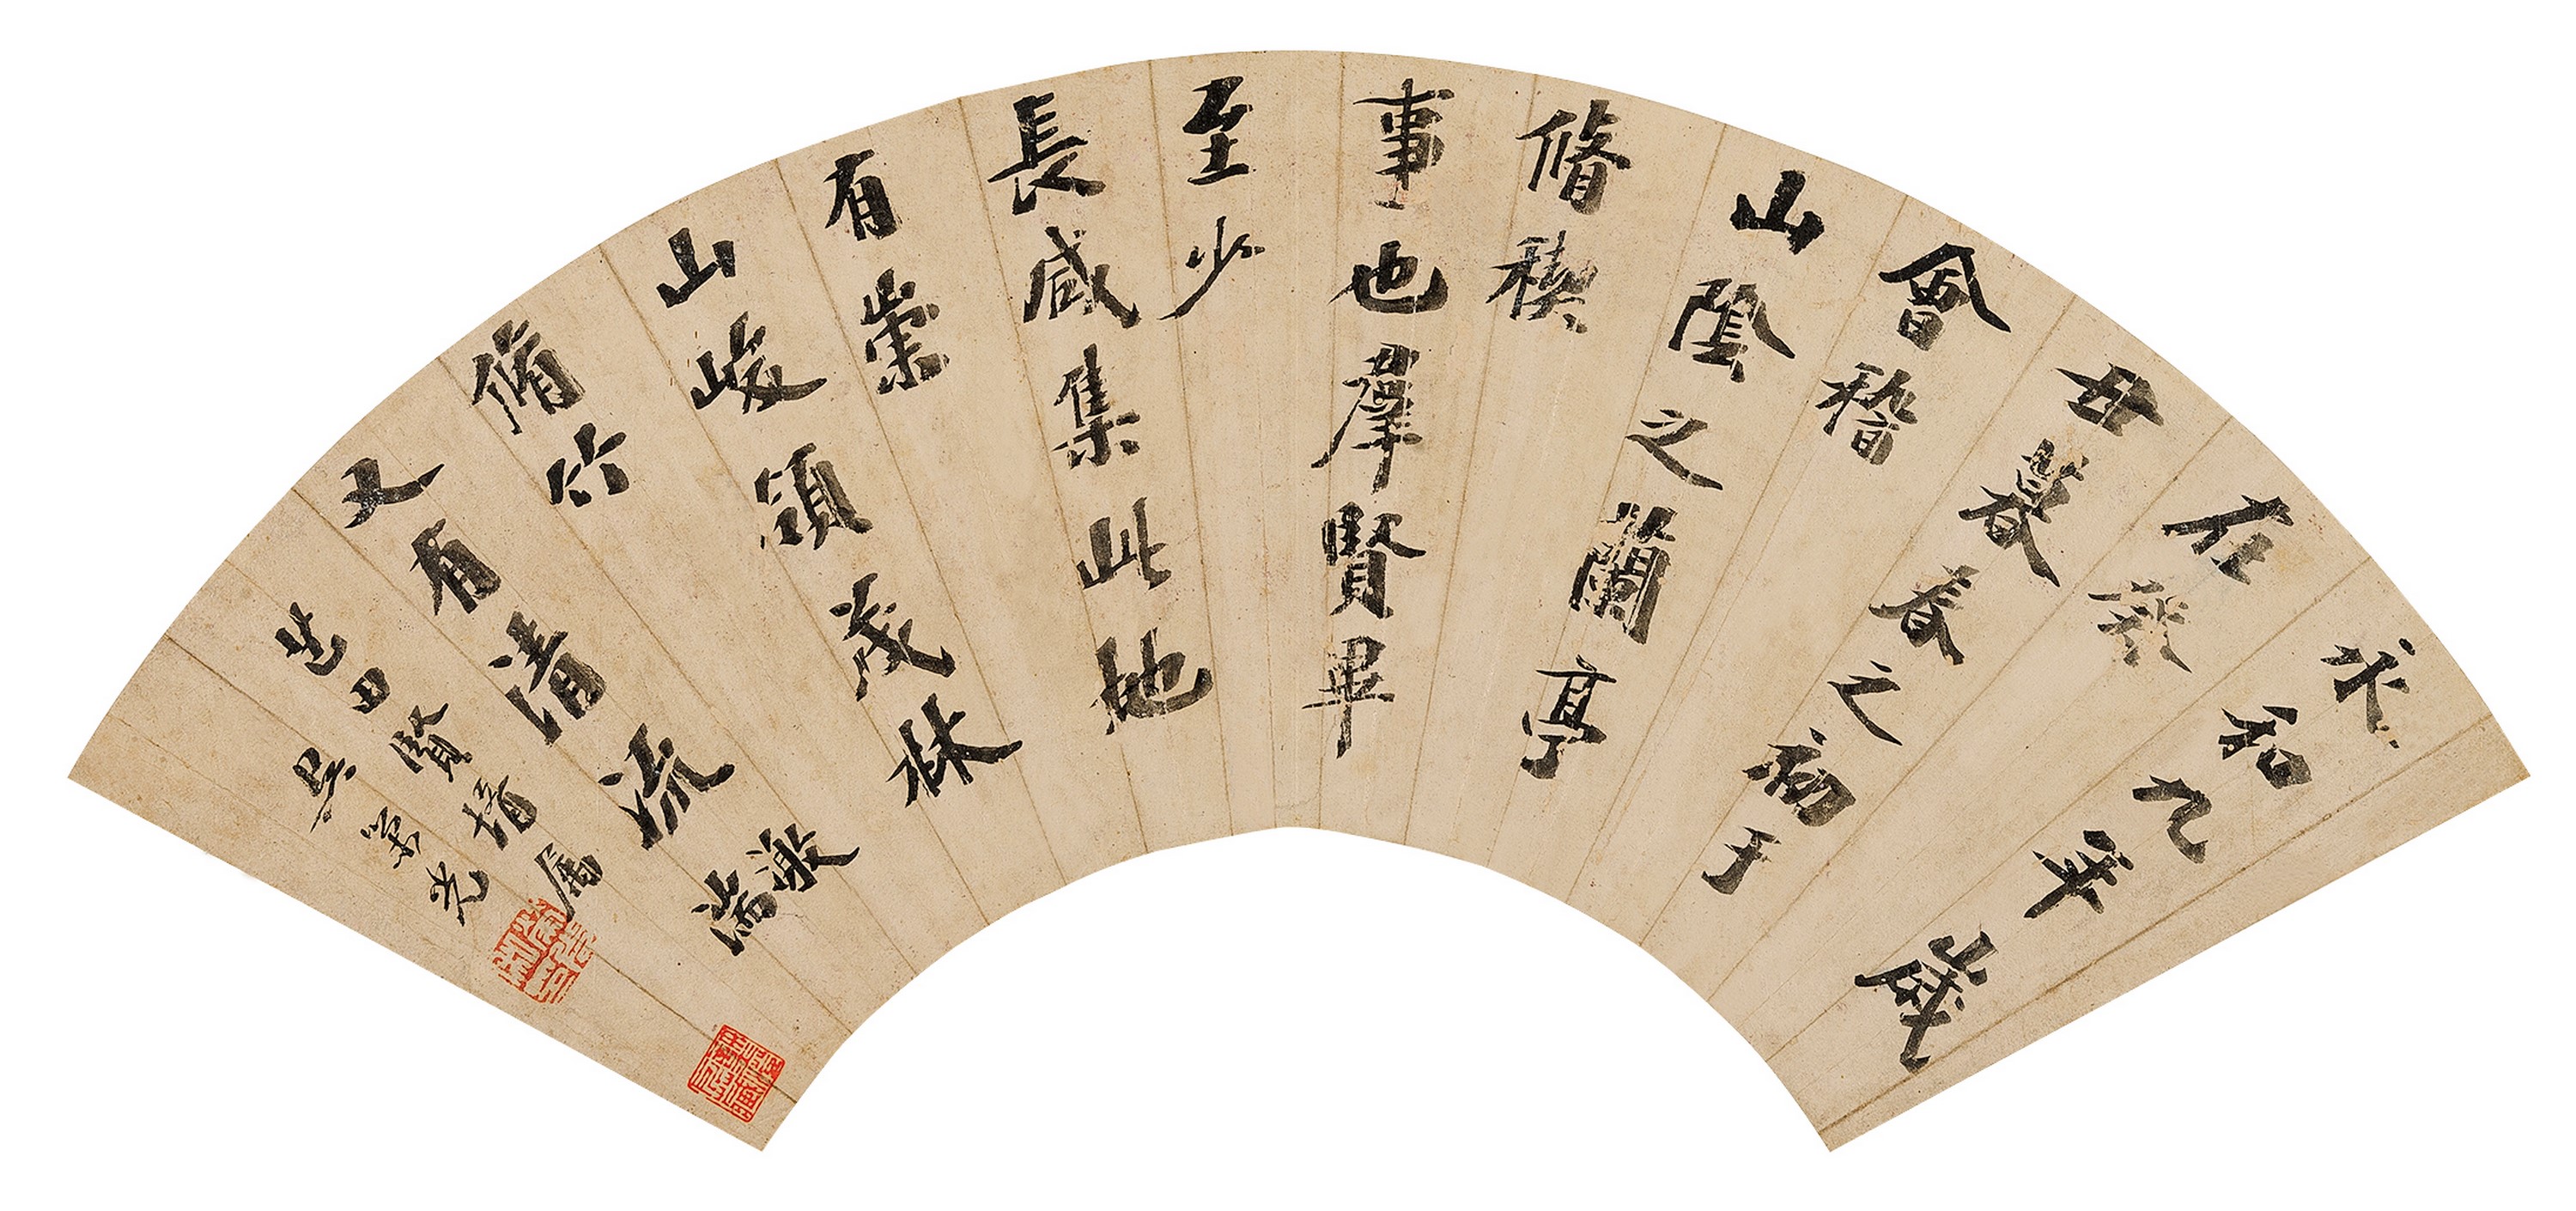 永和九年歲
在癸
丑暮春之初于
會稽
山陰之蘭亭
脩禊
事也羣賢畢
至少
長咸集此地
有崇
山峻領茂林
脩竹
又有清流激湍
芝田賢壻屬
吳榮光